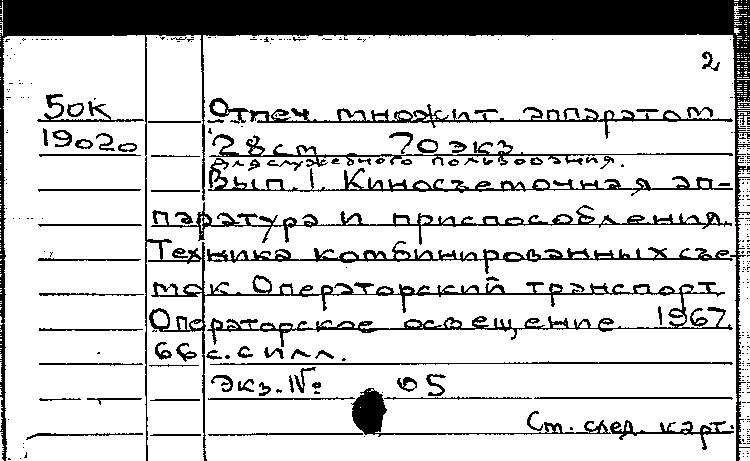 2
50к Отпеч. множит. аппаратом
19020 28см 70 экз.
для служебного пользования.
Вып. 1. Киносъемочная ап-
паратура и приспособления.
Техника комбинированных съе-
мок. Операторский транспорт.
Операторское освещение. 1967.
66 с. с илл.
Экз. № 65
См. след. карт.